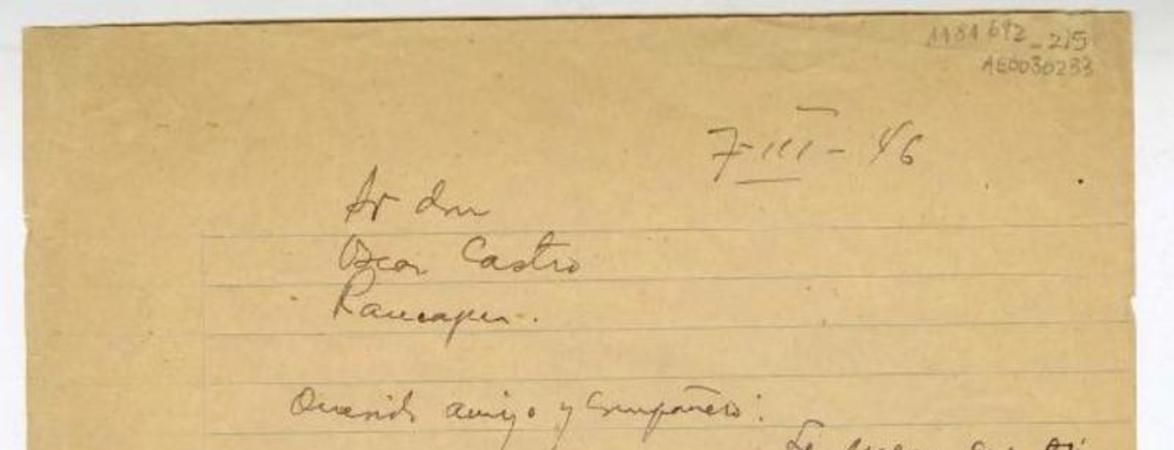 AE0030233
7-III-46
Sr don
Oscar Castro
Rancagua.
Querido amigo y compañero: